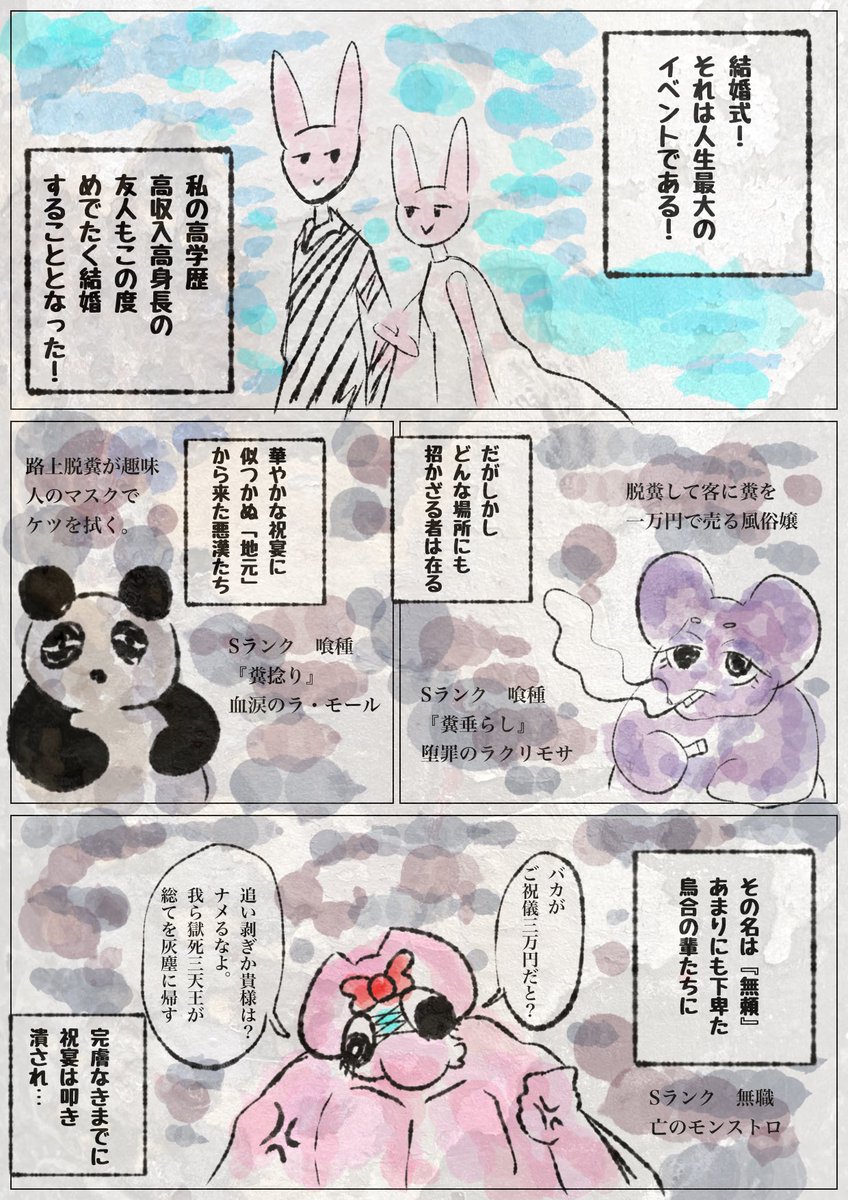 結婚式！
それは人生最大の
イベントである！
私の高学歴
高収入高身長の
友人もこの度
めでたく結婚
することとなった！
だがしかし
どんな場所にも
招かざる者は在る
脱糞して客に糞を
一万円で売る風俗嬢
Sランク　喰種
『糞垂らし』
堕罪のラクリモサ
華やかな祝宴に
似つかぬ「地元」
から来た悪漢たち
路上脱糞が趣味
人のマスクで
ケツを拭く。
Sランク　喰種
『糞捻り』
血涙のラ・モール
その名は『無頼』
あまりにも下卑た
烏合の輩たちに
バカが
ご祝儀三万円だと？
追い剥ぎか貴様は？
ナメるなよ。
我ら獄死三天王が
総てを灰塵に帰す
Sランク　無職
亡のモンストロ
完膚なきまでに
祝宴は叩き
潰され…